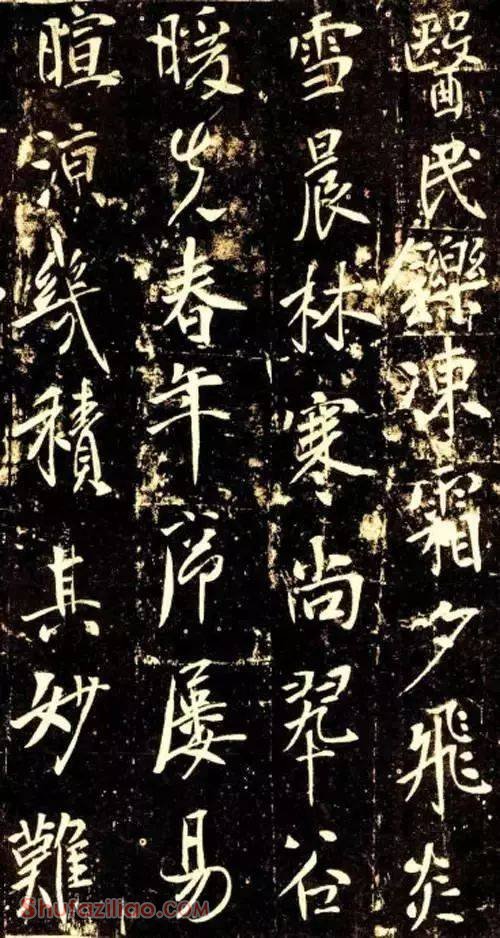 醫民鑠凍霜夕飛炎
雪晨林寒尚翠谷
暖先春年屢易
暄涼幾積其妙難
Shufaziliao.com